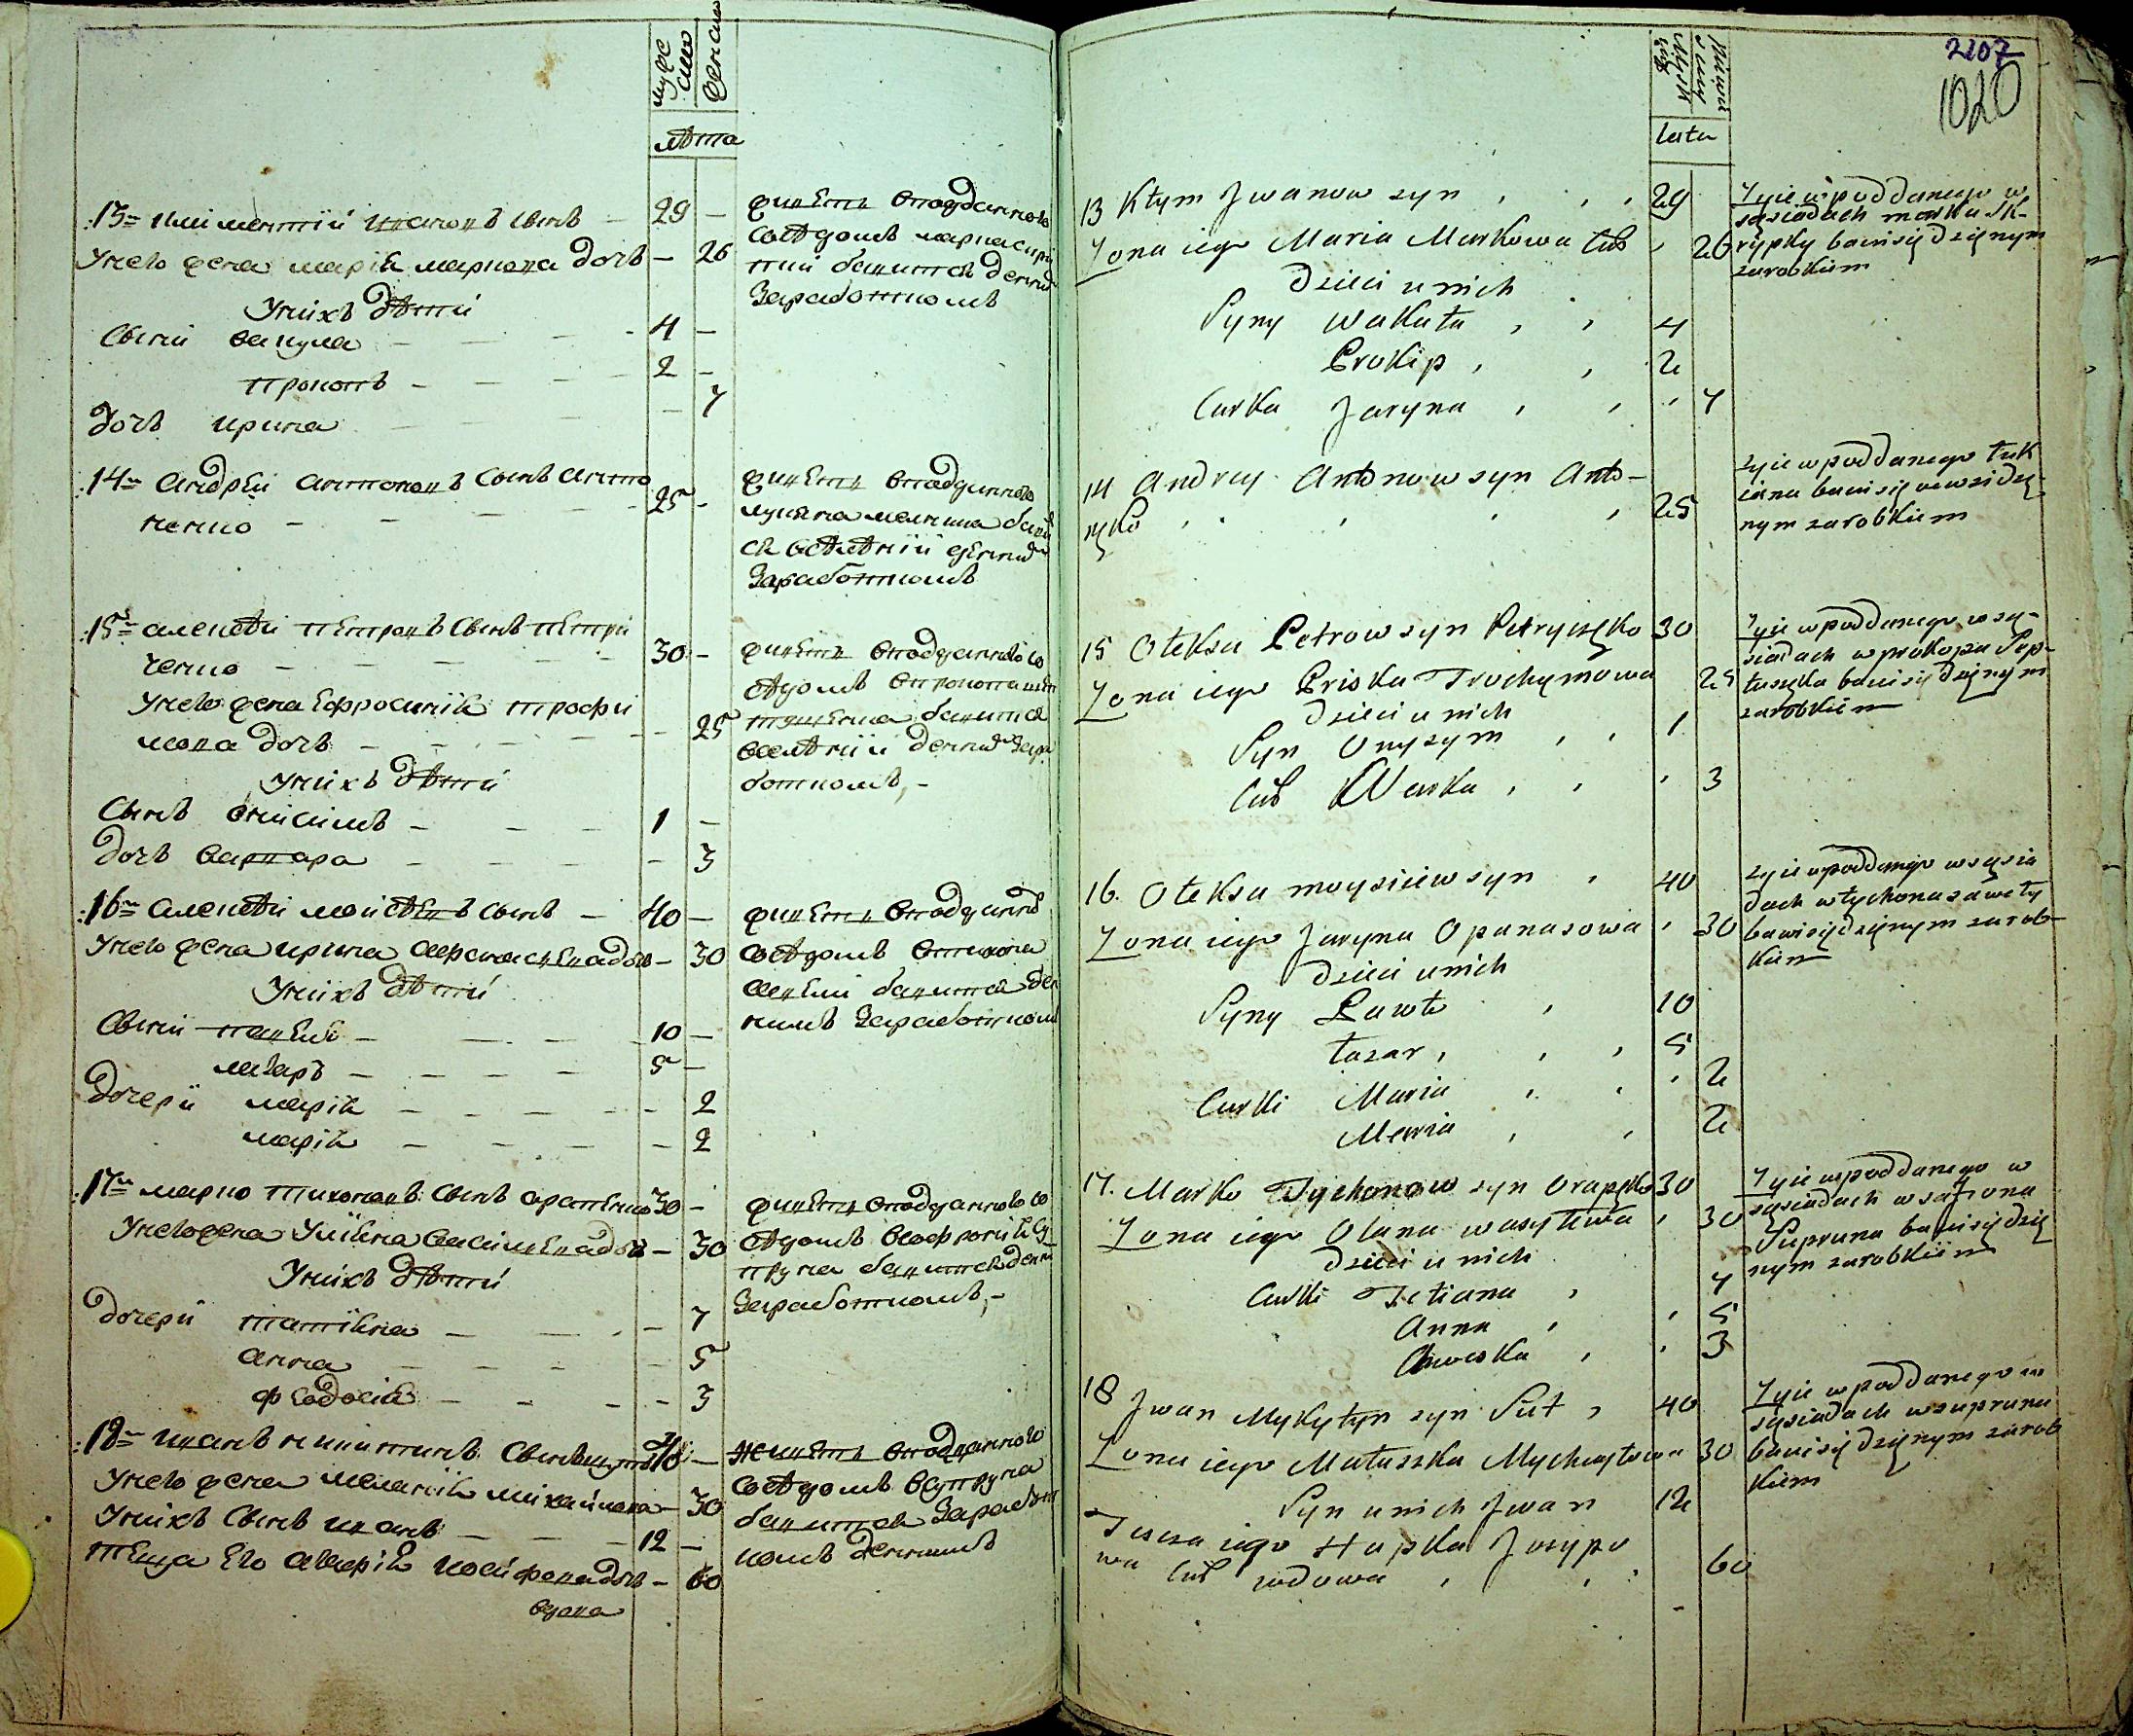 мужес
ска
женска
лѣта
13 климентїй ивановъ сынъ — 29 —
Унего жена марїя маркова дочь — 26
Унихъ дѣти
Сыни вакула — 4 —
прокопъ — 2 —
дочь ирина — 7
живетъ вподданного
сосѣдомъ марка скри
пки бавится денним
Заработкомъ
14 андрѣй антоновъ сынъ анто
ненко — 25 —
живетъ вподданного
лукяна бави
ся денним
Заработкомъ
15 алексѣй петровъ сынъ петри
ченко — 30 —
Унего жена Ефросинїя трофи
мова дочь — 25
Унихъ дѣти
Сынъ онисимъ — 1 —
дочь варвара — 3
живетъ вподданного со
сѣдомъ впрокопа
бавится
денним Зара
боткомъ, —
16 алексѣй моисѣевъ сынъ — 40 —
Унего жена ирина афанасиева дочь — 30
Унихъ дѣти
Сыни павелъ — 10 —
лазарь — 5 —
дочери марїя — 2
марїя — 2
живетъ вподданного
сосѣдомъ втихона
бавится ден
нимъ Заработкомъ
17 марко тихоновъ сынъ арапенко 30 —
Унего жена Улїяна василева дочь — 30
Унихъ дѣти
дочери татїяна — 7
анна — 5
феодосїя — 3
живетъ вподданного со
сѣдомъ всофрония су
пруна бавится денним
Заработкомъ, —
18 иванъ никитинъ сынъ шутъ 40 —
Унего жена меланїя михайлова — 30
Унихъ сынъ иванъ — 12 —
теща Его агафїя иосифова дочь — 60
вдова
живетъ вподданного
сосѣдомъ всупруна
бавится Заработ
комъ деннимъ
2207
1020
Lata
13 Kłym Jwanow syn , , , 29
Zona iego Maria Markowa Cur , 26
Dzieci u nich
Syny Wakuła , , 4
Prokip , , 2
Curka Jaryna , , , 7
Zyie w poddanego w
sąsiadach marka Sk-
rypky bawi się dzęnym
zarobkiem
14 Andrey Antonow syn Anto-
nęko , , , , 25
zyie w poddanego Łuk
iana bawi się wewsi dzę-
nym zarobkiem
15 Ołeksa Petrow syn Petryczęko 30
Zona iego Priska Trochymowa 25
Dzieci u nich
Syn Onysym , , 1
Cur Warka , , , 3
Zyie w poddanego w są-
siadach w prokopa
bawi się dzęnym
zarobkiem
16. Ołeksa moysiiew syn , 40
Zona iego Jaryna Opanasowa , 30
Dzieci u nich
Syny Pawło , 10
Łazar , , , 5
Curki Maria , , , 2
Maria , , 2
zyie w poddanego w sąsia
dach w tychona saweły
bawi się dzięnym zarob-
kiem
17. Marko Tychonow syn Orapęko 30
Zona iego Olana wasylowa , 30
Dzieci u nich
Curki Tetiana , 7
Anna , , 5
Chweska , , 3
Zyie w poddanego w
sąsiadach w safrona
Supruna bawi się dzię
nym zarobkiem
18 Jwan Mykytyn syn Szut , 40
Zona iego Małaszka Mychayłowa 30
Syn u nich Jwan 12
Tescza iego Hapka Josypo
wa Cur wdowa , , , 60
Zyie w poddanego w
sąsiadach w supruna
bawi się dzęnym zarob
kiem